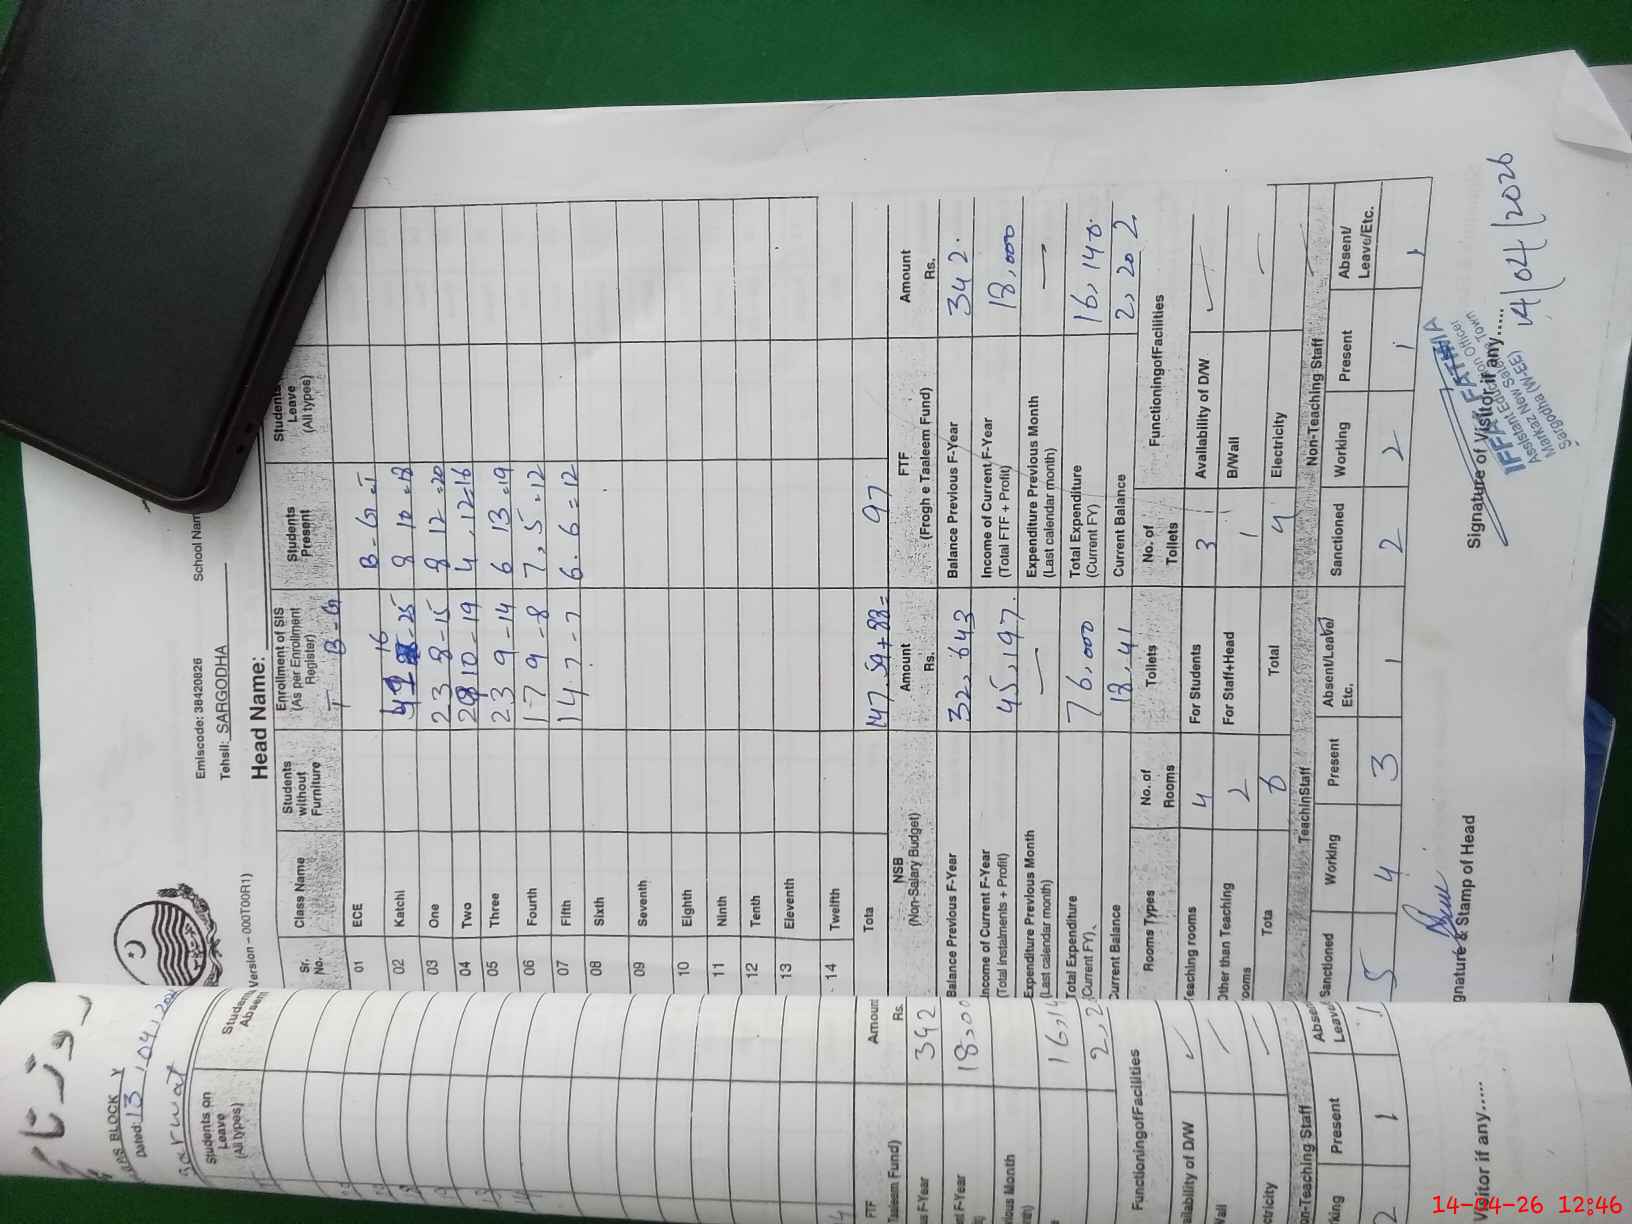 Version – 000T00R1)
Emiscode: 38420826
School Nam
Tehsil: SARGODHA
Head Name:
Sr. No. Class Name Students without Furniture Enrollment of SIS (As per Enrollment Register) Students Present Students Leave (All types)
T B - G
01 ECE B - G = T
02 Katchi 16 - 25 8 10 = 18
03 One 23 8 - 15 8 12 = 20
04 Two 10 - 19 4 . 12 = 16
05 Three 23 9 - 14 6 13 = 19
06 Fourth 17 9 - 8 7, 5 = 12
07 Fifth 14 . 7 - 7 6 . 6 = 12
08 Sixth
09 Seventh
10 Eighth
11 Ninth
12 Tenth
13 Eleventh
14 Twelfth
Tota 147 . 59 + 88 = 97
NSB (Non-Salary Budget) Amount Rs. FTF (Frogh e Taaleem Fund) Amount Rs.
Balance Previous F-Year 32,643 Balance Previous F-Year 342.
Income of Current F-Year (Total instalments + Profit) 45,197. Income of Current F-Year (Total FTF + Profit) 18,000
Expenditure Previous Month (Last calendar month) — Expenditure Previous Month (Last calendar month) —
Total Expenditure (Current FY) 76,000 Total Expenditure (Current FY) 16,140.
Current Balance 18,41 Current Balance 2,202
Rooms Types No. of Rooms Toilets No. of Toilets FunctioningofFacilities
Teaching rooms 4 For Students 3 Availability of D/W ✓
Other than Teaching rooms 2 For Staff+Head 1 B/Wall
Tota 6 Total 4 Electricity
TeachinStaff Non-Teaching Staff
Sanctioned Working Present Absent/Leave/ Etc. Sanctioned Working Present Absent/ Leave/Etc.
5 4 3 1 2 2 1 1
gnature & Stamp of Head
Signature of Visitor if any.....
14/04/2026
IFFAT FATHIA
Assistant Education Officer
Markaz New Satellite Town
Sargodha (W-EE)
BLOCK Y
Dated: 13, 04, 202
Students on Leave (All types) Student Absent
FTF Amount Rs.
Taaleem Fund)
us F-Year 342
nt F-Year 18,00
vious Month
16,14
2,2
FunctioningofFacilities
ailability of D/W ✓
Wall
ctricity
on-Teaching Staff
rking Present Absen Leave
2 1 1
Visitor if any.....
14-04-26 12:46